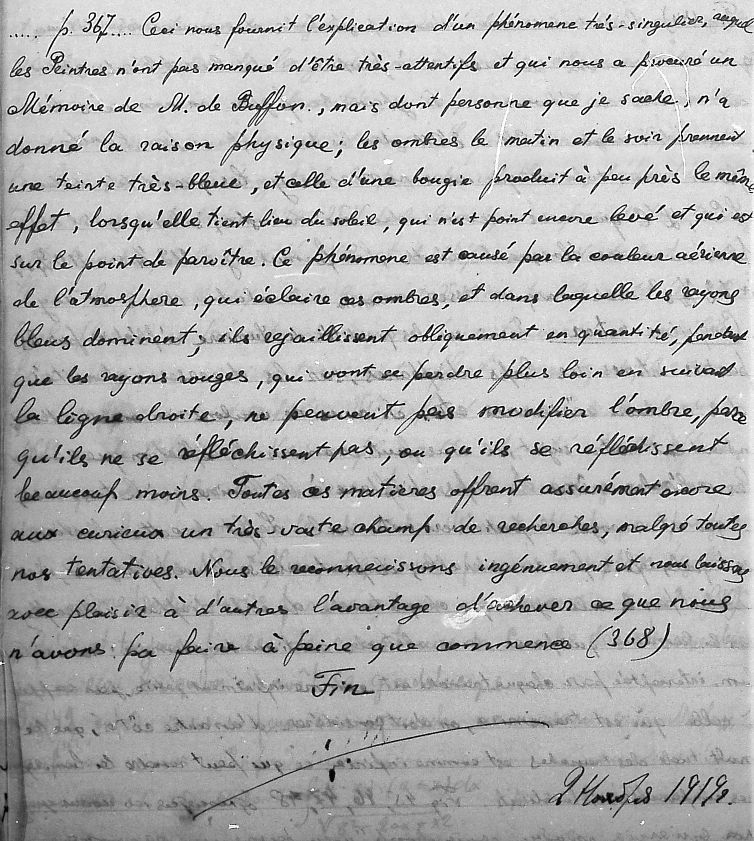 ..... p. 367.... Ceci nous fournit l'explication d'un phénomene très-singulier, auquel
les Peintres n'ont pas manqué d'être très-attentifs et qui nous a procuré un
Mémoire de M. de Buffon., mais dont personne que je sache, n'a
donné la raison physique; les ombres le matin et le soir prennent
une teinte très-bleue, et celle d'une bougie produit à peu près le même
effet, lorsqu'elle tient lieu du soleil, qui n'est point encore levé et qui est
sur le point de paroître. Ce phénomene est causé par la couleur aérienne
de l'atmosphere, qui éclaire ces ombres, et dans laquelle les rayons
bleus dominent; ils rejaillissent obliquement en quantité, pendant
que les rayons rouges, qui vont se perdre plus loin en suivant
la ligne droite, ne peuvent pas modifier l'ombre, parce
qu'ils ne se réfléchissent pas, ou qu'ils se réfléchissent
beaucoup moins. Toutes ces matieres offrent assurément encore
aux curieux un très-vaste champ de recherches, malgré toutes
nos tentatives. Nous le reconnaissons ingénuement et nous laissons
avec plaisir à d'autres l'avantage d'achever ce que nous
n'avons pa faire à peine que commence (368)
Fin
2 1919